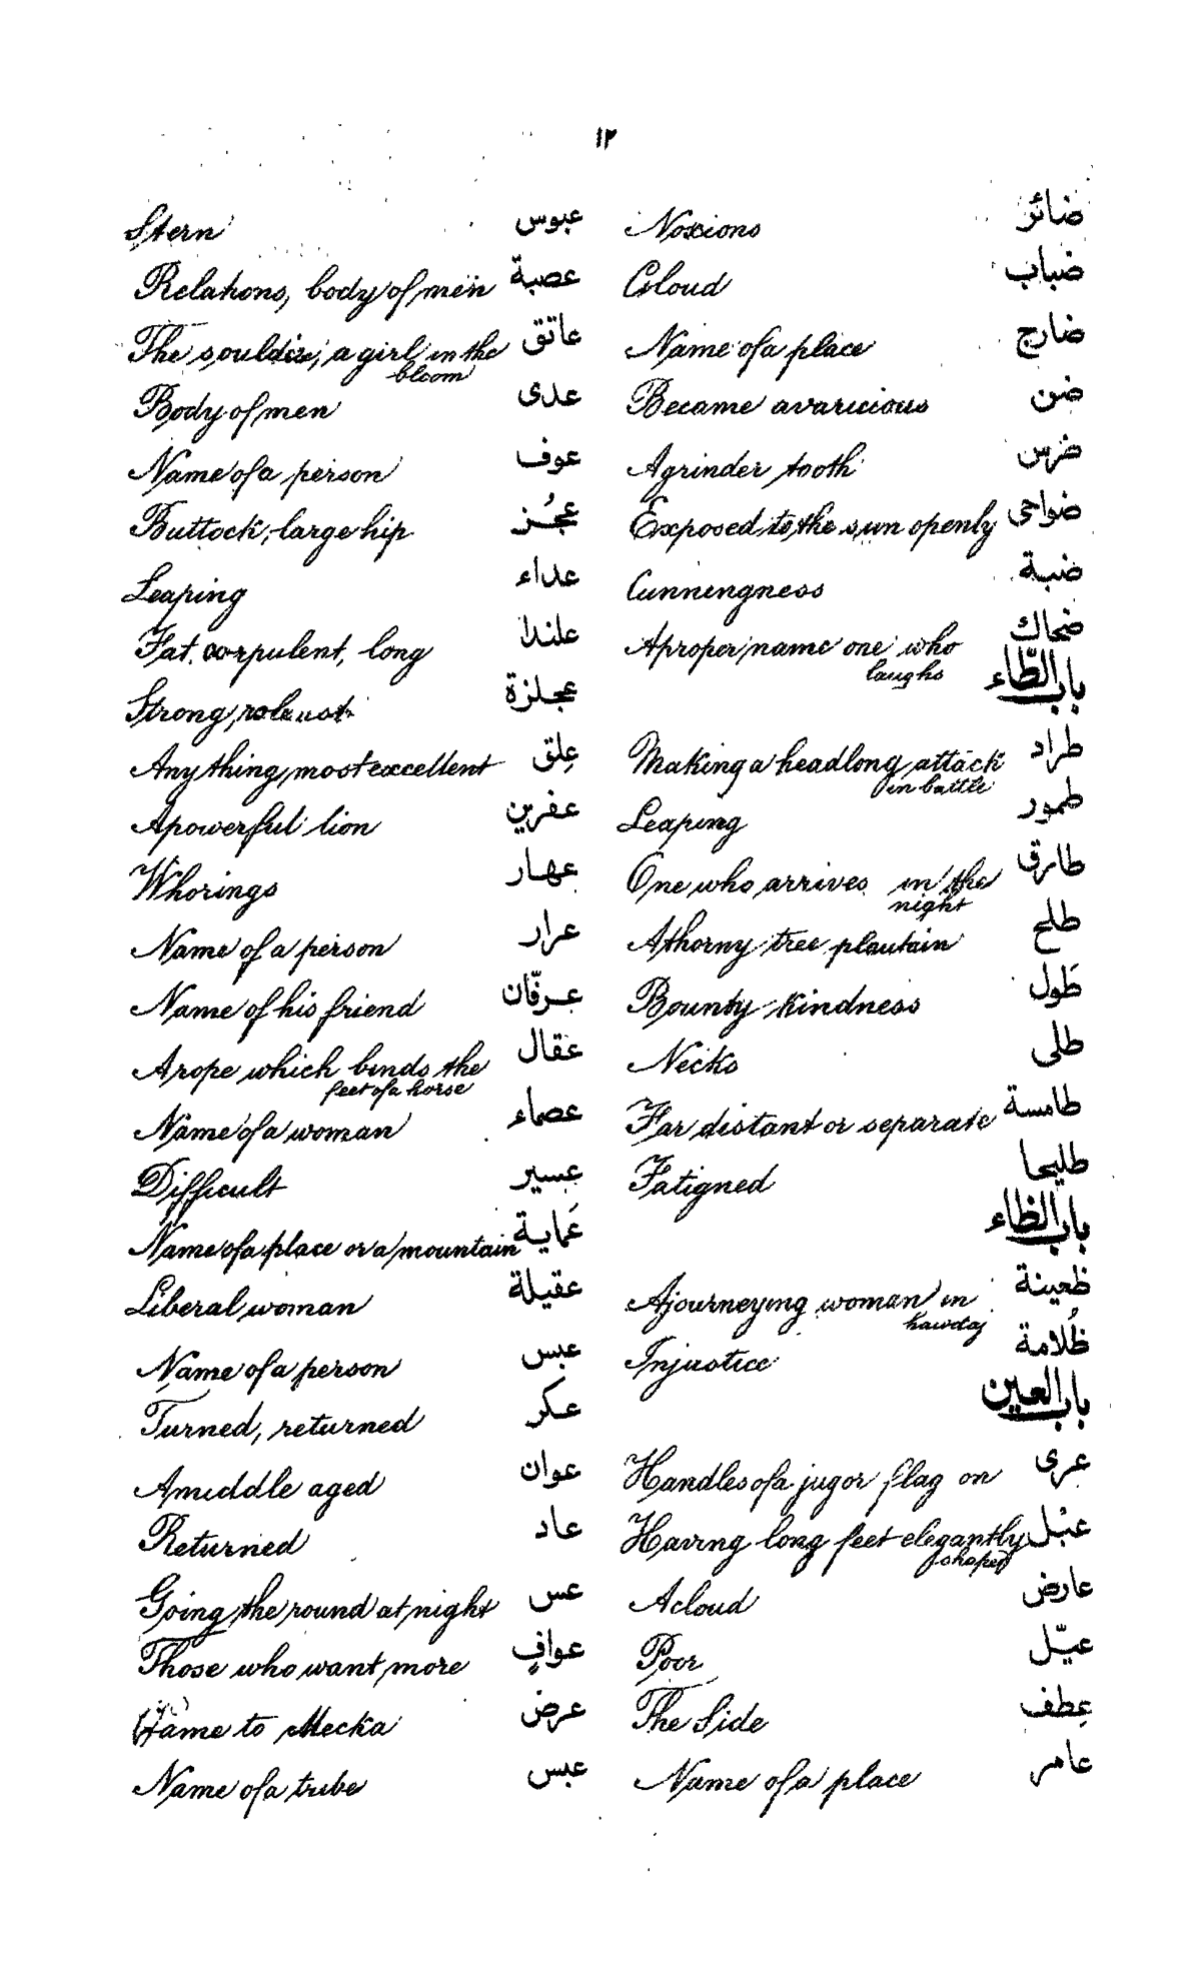 ١٢
ضائر Noxious
ضباب Cloud
ضارج Name of a place
ضن Became avaricious
ضرس A grinder tooth
ضواحى Exposed to the sun openly
ضبة Cunningness
ضحاك A proper name one who
laughs
باب الطّاء
طراد Making a headlong attack
in battle
طمور Leaping
طارق One who arrives in the
night
طلح A thorny tree plantain
طَول Bounty kindness
طلى Necks
طامسة Far distant or separate
طليحا Fatigned
باب الظاء
ظعينة A journeying woman in
hawdaj
ظُلامة Injustice
باب العين
عرى Handles of a jug or flag on
عبْل Having long feet elegantly
shaped
عارض A cloud
عيّل Poor
عِطف The Side
عامر Name of a place
عبوس Stern
عصبة Relations, body of men
عاتق The soulder, a girl in the
bloom
عدى Body of men
عوف Name of a person
عجُز Buttock, large hip
عداء Leaping
علندا Fat, corpulent, long
عجلزة Strong, robust
عِلق Any thing, most excellent
عفرين A powerful lion
عهار Whorings
عرار Name of a person
عرفّان Name of his friend
عقال A rope which binds the
feet of a horse
عصماء Name of a woman
عسير Difficult
عَماية Name of a place or a mountain
عقيلة Liberal woman
عبس Name of a person
عكر Turned, returned
عوان A middle aged
عاد Returned
عس Going the round at night
عوافٍ Those who want more
عرض Came to Mecka
عبس Name of a tribe